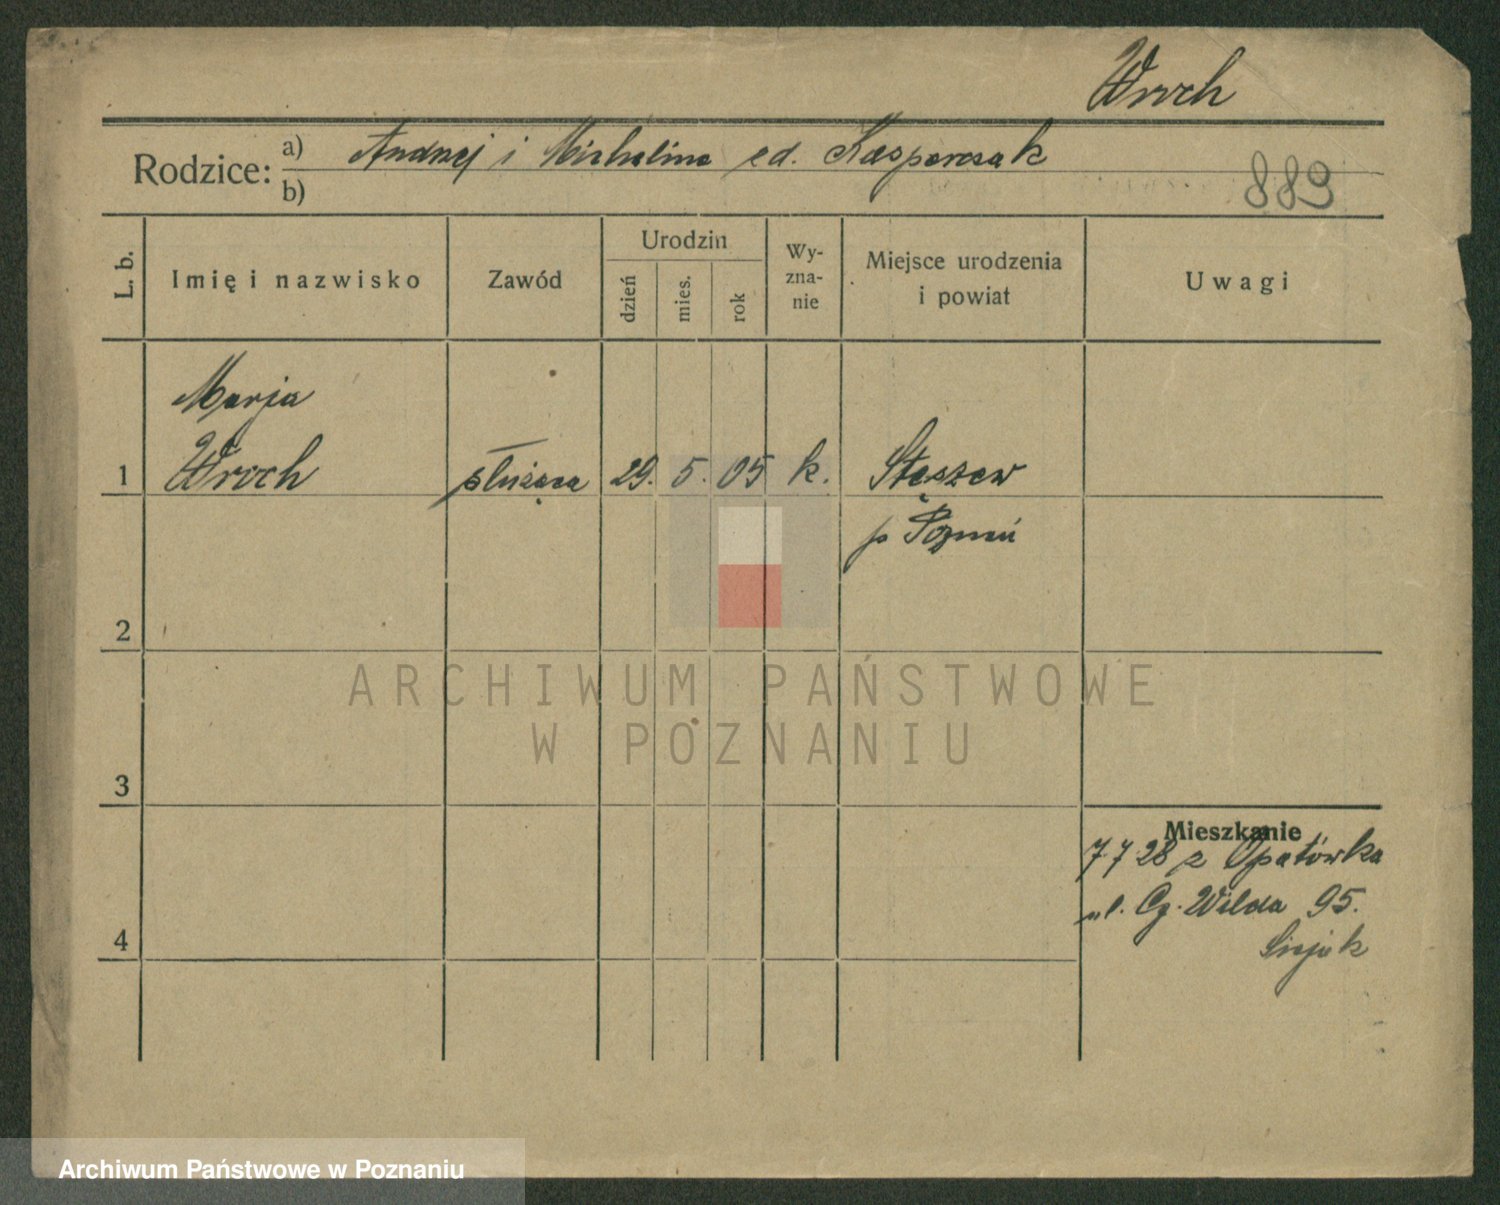 Wroch
Rodzice:
a) Andrzej i Michalina zd. Kasperczak
b)
889
L. b.
Imię i nazwisko
Zawód
Urodzin
dzień
mies.
rok
Wy-
zna-
nie
Miejsce urodzenia
i powiat
Uwagi
Marja
1 Wroch służąca 29. 5. 05 k. Stęszew
p Poznań
2
ARCHIWUM PAŃSTWOWE
W POZNANIU
3
Mieszkanie
7 7 28 z Opatówka
ul. Wilda 95.
4
Archiwum Państwowe w Poznaniu